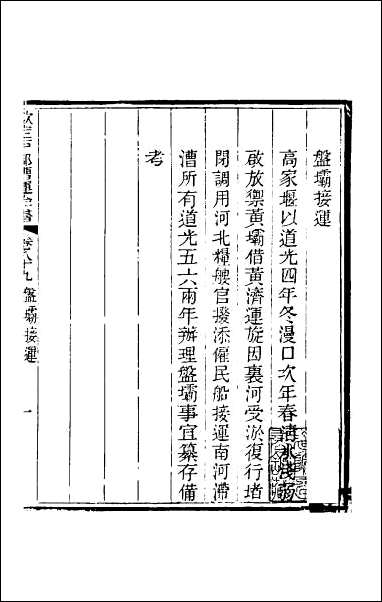 盤壩接運
高家堰以道光四年冬漫口次年春清水淺
啟放禦黃壩借黃濟運旋因裏河受淤復行堵
閉調用河北糧艘官撥添僱民船接運南河滯
漕所有道光五六兩年辦理盤壩事宜纂存備
考
戶部漕運全書 卷八十九 盤壩接運 一